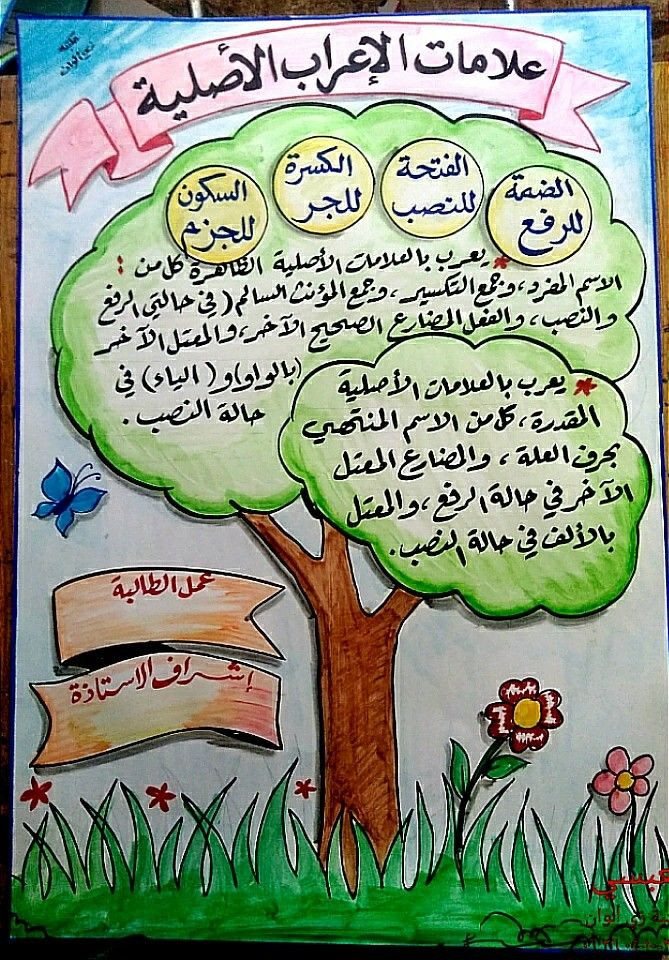 علامات الإعراب الأصلية
الضمة للرفع
الفتحة للنصب
الكسرة للجر
السكون للجزم
* يعرب بالعلامات الأصلية الظاهرة كل من :
الاسم المفرد، وجمع التكسير، وجمع المؤنث السالم (في حالتي الرفع
والنصب، والفعل المضارع الصحيح الآخر، والمعتل الآخر
(بالواو) و (الياء) في
حالة النصب.
* يعرب بالعلامات الأصلية
المقدرة، كل من الاسم المنتهي
بحرف العلة، والمضارع المعتل
الآخر في حالة الرفع، والمعتل
بالألف في حالة النصب.
عمل الطالبة
إشراف الاستاذة